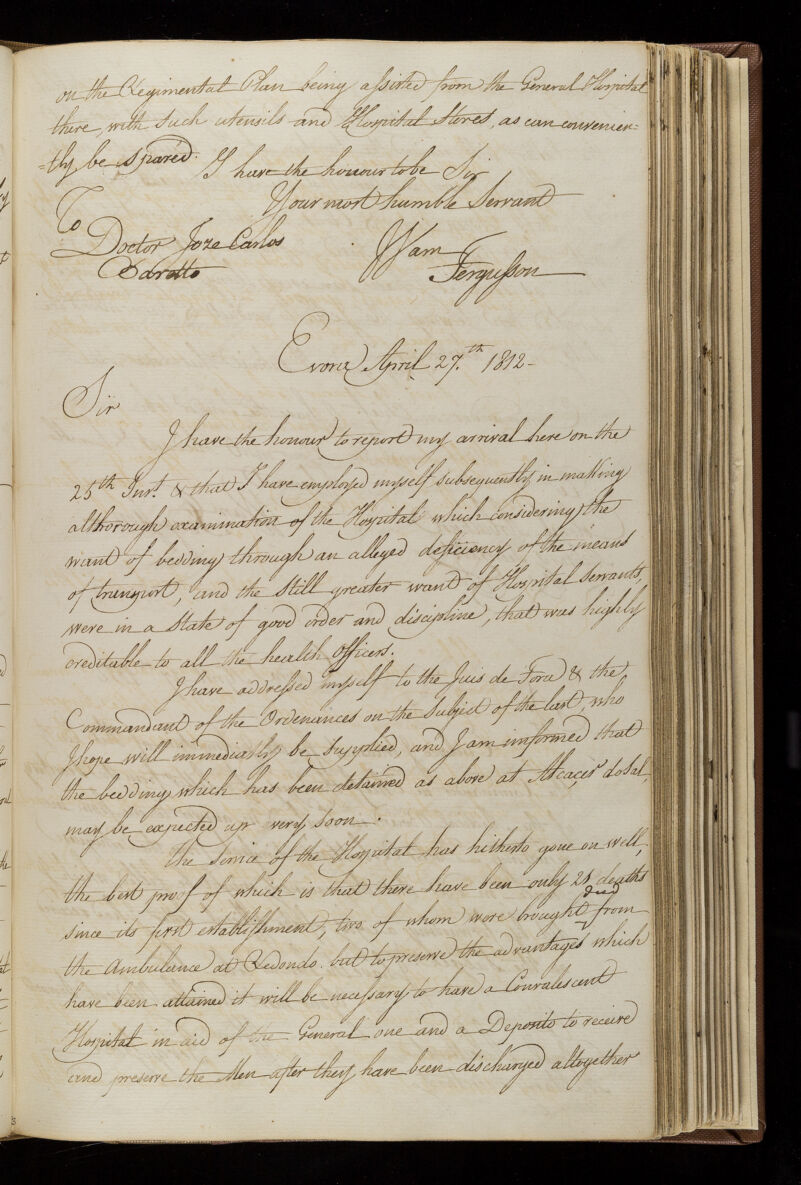 on the Regimental Plan being assisted from the General Hospital
there, with such utensils and Hospital Stores, as can convenien=
=tly be spared. I have the honour to be Sir
Your most humble Servant
To
Doctor Joze Carlos
Barotto
Wam
Fergusson
Evora April 27.th 1812-
Sir
I have the honour to report my arrival here on the
25th Inst. & that I have employed myself subsequently in making
a thorough examination of the Hospital which considering the
want of bedding through an alleged deficiency of the means
of transport, and the still greater want of Hospital Servants,
were in a state of good order and discipline, that was highly
creditable to all the health officers.
I have addressed myself to the Juis de Fora & the
Commandant of the Ordenances on the subject of the last, who
I hope will immediatly be supplied, and I am informed that
the bedding which has been detained as above at Alcaçer dosal,
may be expected up very soon.
The service of the Hospital has hitherto gone on well,
the best proof of which is that there have been only 21 deaths
since its first establishment, two of whom were brought dead from
the Ambulance at Redondo. but to preserve the advantages which
have been attained it will be necessary to have a Convalescent
Hospital in aid of the General one and a Deposito to receive
and preserve the Men after they have been discharged altogether